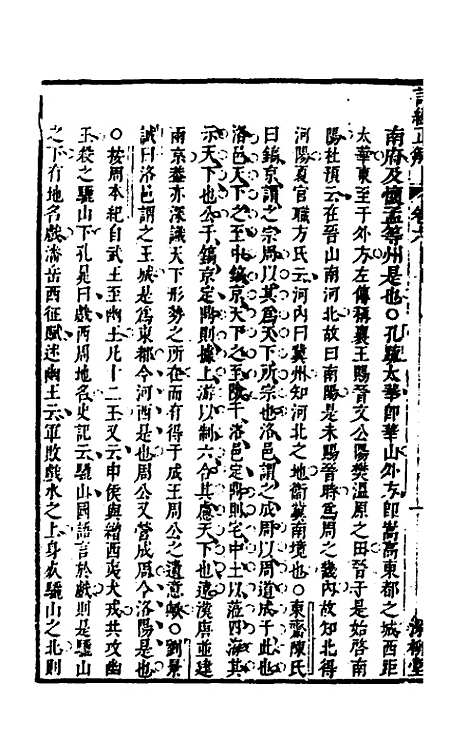 南府及懷孟等州是也○孔疏太華卽華山外方卽嵩高東都之城西距
太華東至于外方左傳稱襄王賜晉文公陽樊溫原之田晉于是始啓南
陽杜預云在晉山南河北故曰南陽是未賜晉時爲周之畿內故知北得
河陽夏官職方氏云河內曰冀州知河北之地衞冀南境也○東齋陳氏
曰鎬京謂之宗周以其爲天下所宗也洛邑謂之成周以周道成于此也
洛邑天下之至中鎬京天下之至險于洛邑定鼎則宅中土以蒞四海其
示天下也公于鎬京定鼎則據上游以制六合其慮天下也遠漢唐並建
兩京蓋亦深識天下形勢之所在而有得于成王周公之遺意歟○劉景
誠曰洛邑謂之王城是爲東都今河西是也周公又營成周今洛陽是也
○按周本紀自武王至幽王凡十二王又云申侯與繒西夷犬戎共攻幽
王殺之驪山下孔晁曰戲西周地名史記云驪山國語言於戲則是驪山
之下有地名戲潘岳西征賦述幽王云軍敗戲水之上身死驪山之北則
詩經正解
卷六
深柳堂